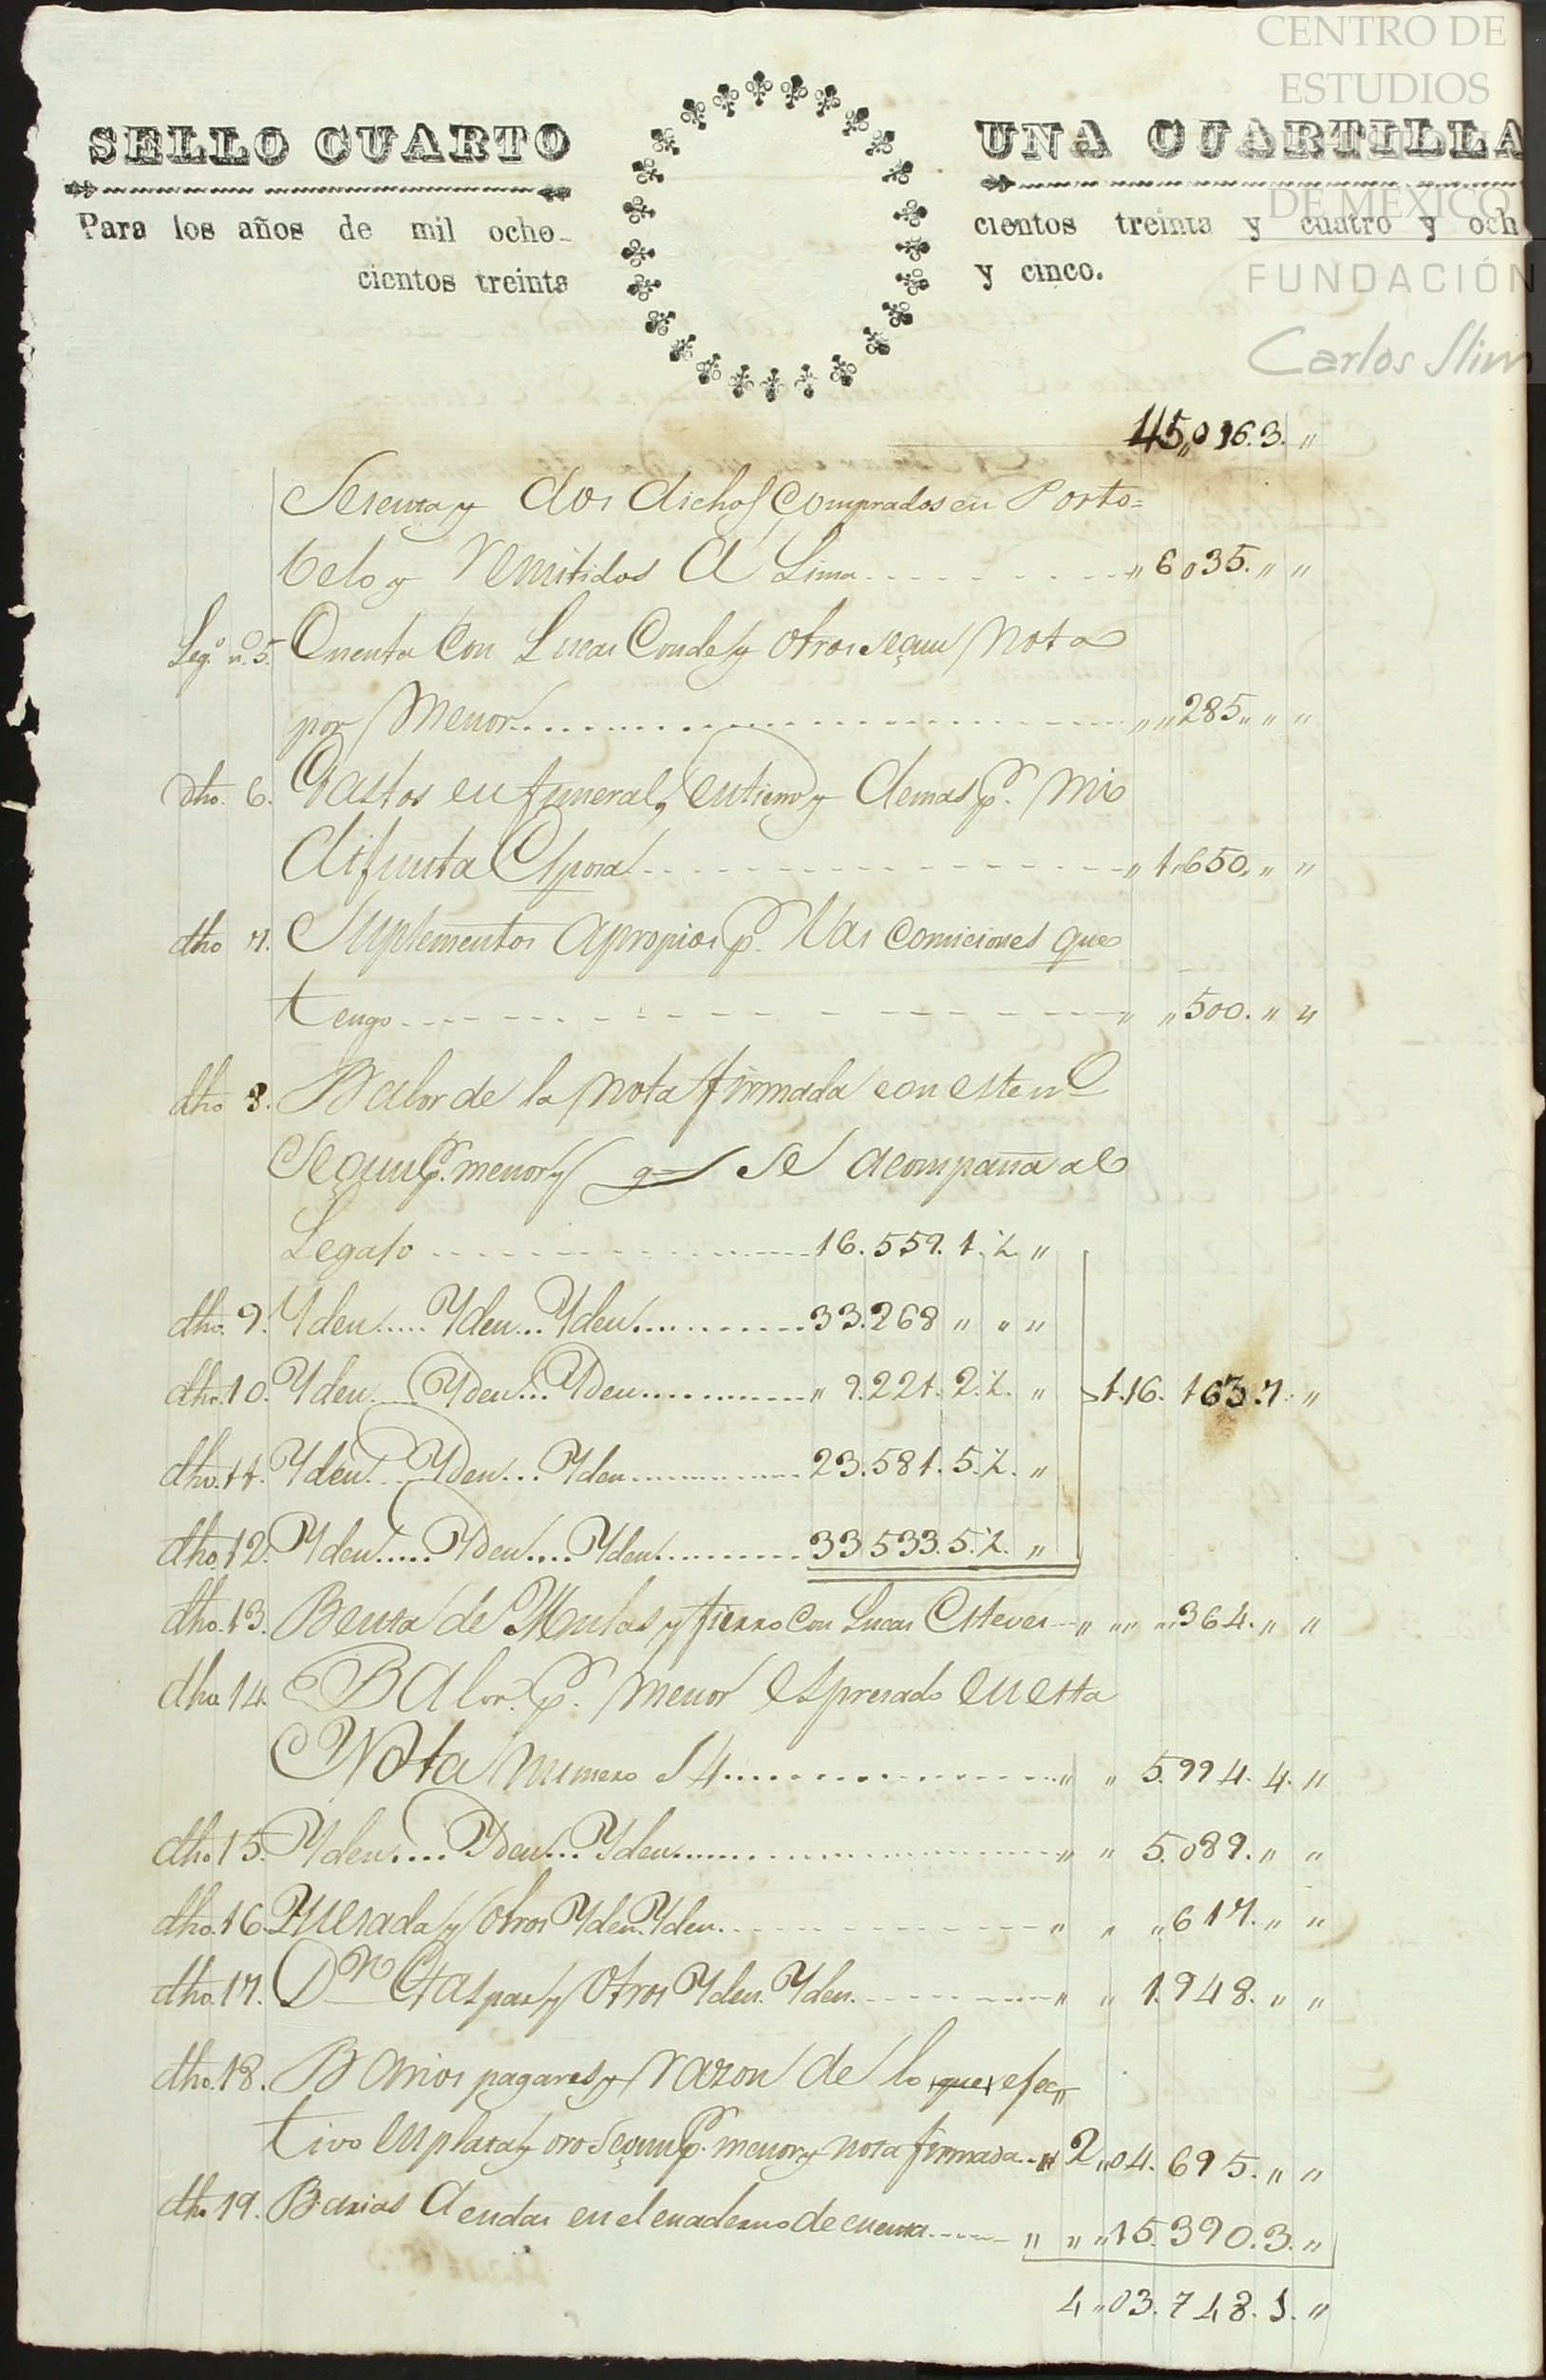 CENTRO DE
ESTUDIOS
DE MÉXICO
FUNDACIÓN
Carlos Slim
SELLO CUARTO
Para los años de mil ocho-
cientos treinta
UNA CUARTILLA
cientos treinta y cuatro y och
y cinco.
45,,016.3. ,,
Setenta y dos dichos Comprados en Porto=
belo y remitidos A Lima - - - - - ,, 6035. ,, ,,
Leg.º n.º 5. Cuenta Con Lucas Conde y otros segun nota
por Menor - - - - - ,, ,, 285. ,, ,,
dho. 6. Gastos en funeral, entierro y demas p.r mi
difunta Esposa - - - - - ,, 1,,650. ,, ,,
dho 7. Suplementos apropios p.r las comiciones que
tengo - - - - - ,, ,, 500. ,, ,,
dho 8. Balor de la nota firmada con este n.º
Segun p.r menor y q.e se acompaña al
Legajo - - - - - 16.559. 1.½. ,,
dho. 9. Yden..... Yden... Yden.......... 33.268 ,, ,, ,,
dho. 10. Yden.... Yden... Yden.......... ,, 9.221. 2.½. ,, 1.16. 163.7. ,,
dho. 11. Yden.... Yden... Yden.......... 23.581. 5.½. ,,
dho. 12. Yden..... Yden.... Yden.......... 33533. 5.½. ,,
dho. 13. Benta de Mulas y fierro Con Lucas Esteves ,, ,,,, ,, 364. ,, ,,
dho. 14. Balor p.r menor espresado en esta
Nota numero 14 .......... ,, ,, 5.994. 4. ,,
dho. 15. Yden.... Yden... Yden.......... ,, ,, 5.089. ,, ,,
dho. 16. Quesada y otros Yden. Yden. - - - - - ,, ,, ,, 617. ,, ,,
dho. 17. Dn Gaspar y otros Yden. Yden. - - - - - ,, ,, 1.948. ,, ,,
dho. 18. Barios pagares y razon de lo que efec,,
tivo en plata y oro Segun p.r menor y nota firmada.. ,, 2,,04. 695. ,, ,,
dho 19. Barias deudas en el cuaderno de cuenta - - - - - ,, ,, ,,15. 390. 3. ,,
4,,03. 748. 1. ,,